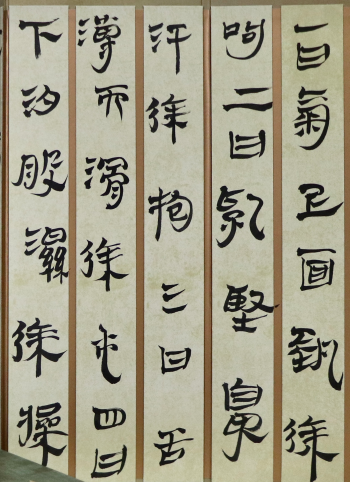 一曰氣上面𤍠徐
呴二曰乳堅鼻
汗徐抱三曰舌
溥而滑徐屯四曰
下汐股濕徐操